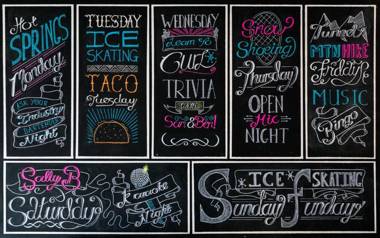 Hot
SPRINGS
Monday
ASK YOUR
Industry
BARTENDER
Night
TUESDAY
ICE
SKATING
TACO
Tuesday
WEDNESDAY
Learn to
Curl
TRIVIA
with
San & Ben!
Snow
Shoeing
Thursday
OPEN
Mic
NIGHT
Tunnel
MTN HIKE
Friday
MUSIC
Bingo
Sally B
Saturday
Karaoke
Night
*ICE* SKATING
Sunday Funday!